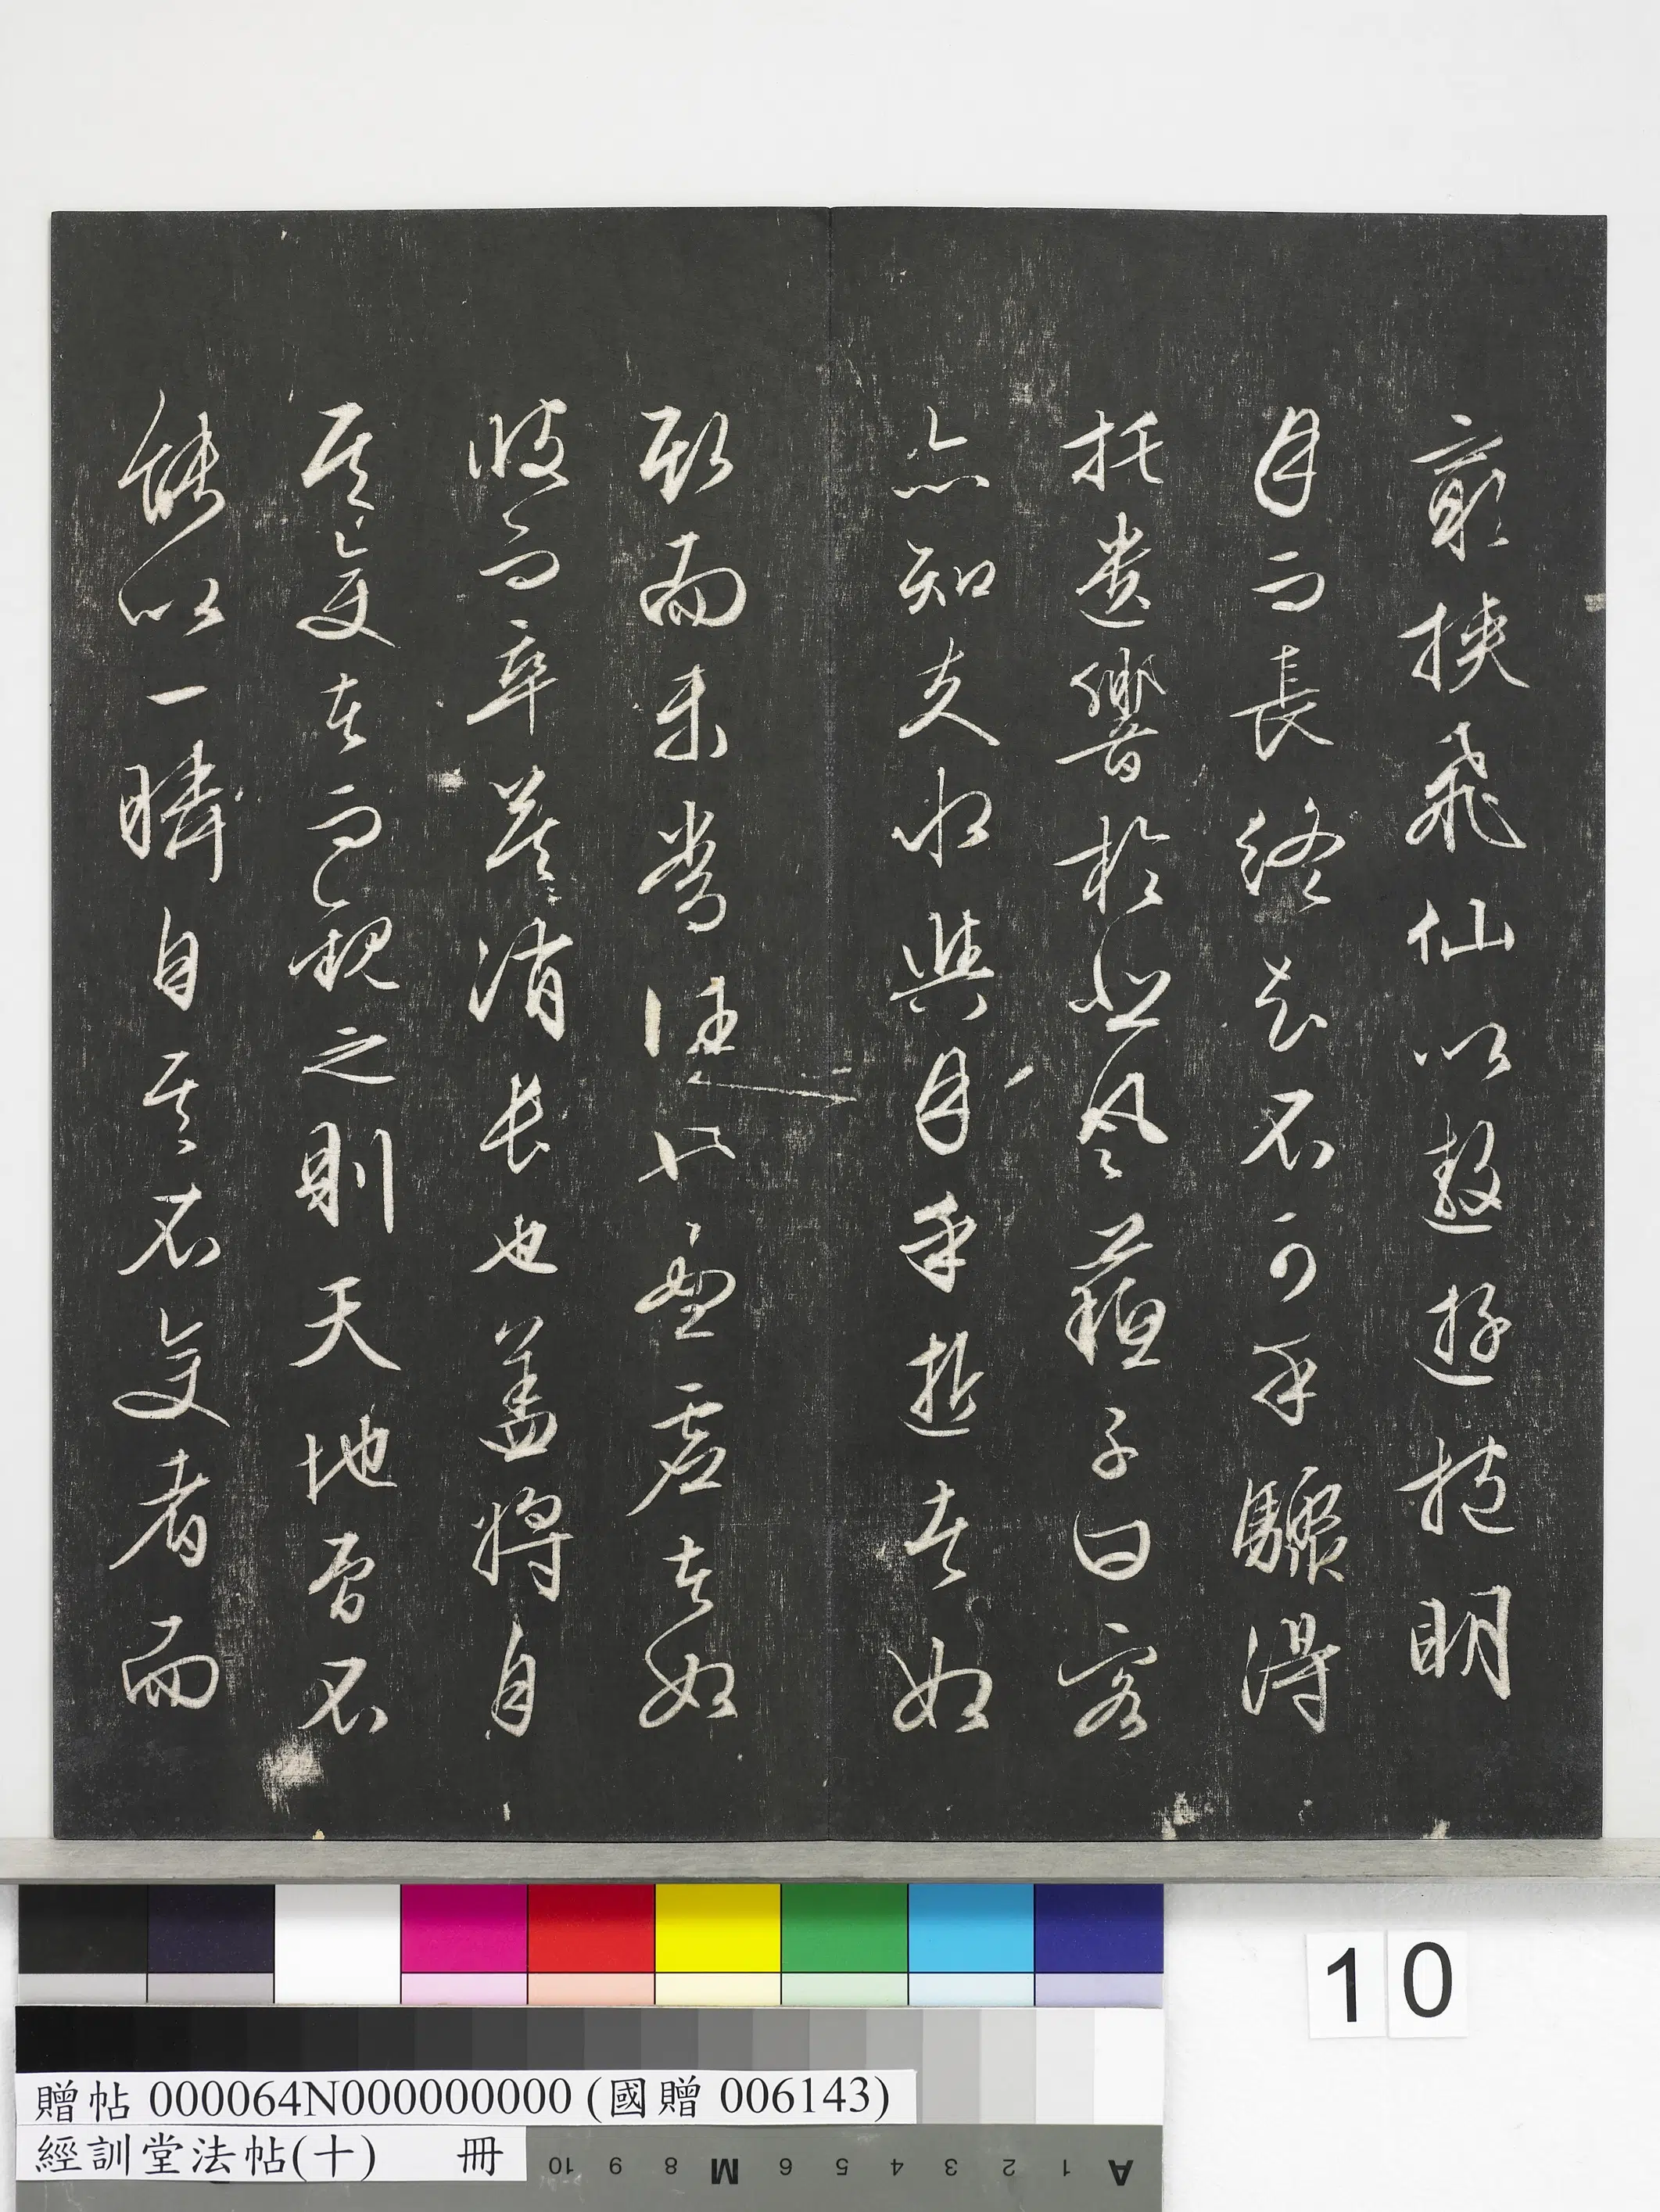 窮挾飛仙以遨遊抱明
月而長終知不可乎驟得
托遺響於悲風蘓子曰客
亦知夫水與月乎逝者如
斯而未嘗往也盈虛者如
彼而卒莫消長也盖將自
其變者而觀之則天地曾不
能以一瞬自其不變者而
10
贈帖 000064N000000000 (國贈 006143)
經訓堂法帖(十) 冊
A 1 2 3 4 5 6 M 8 9 10